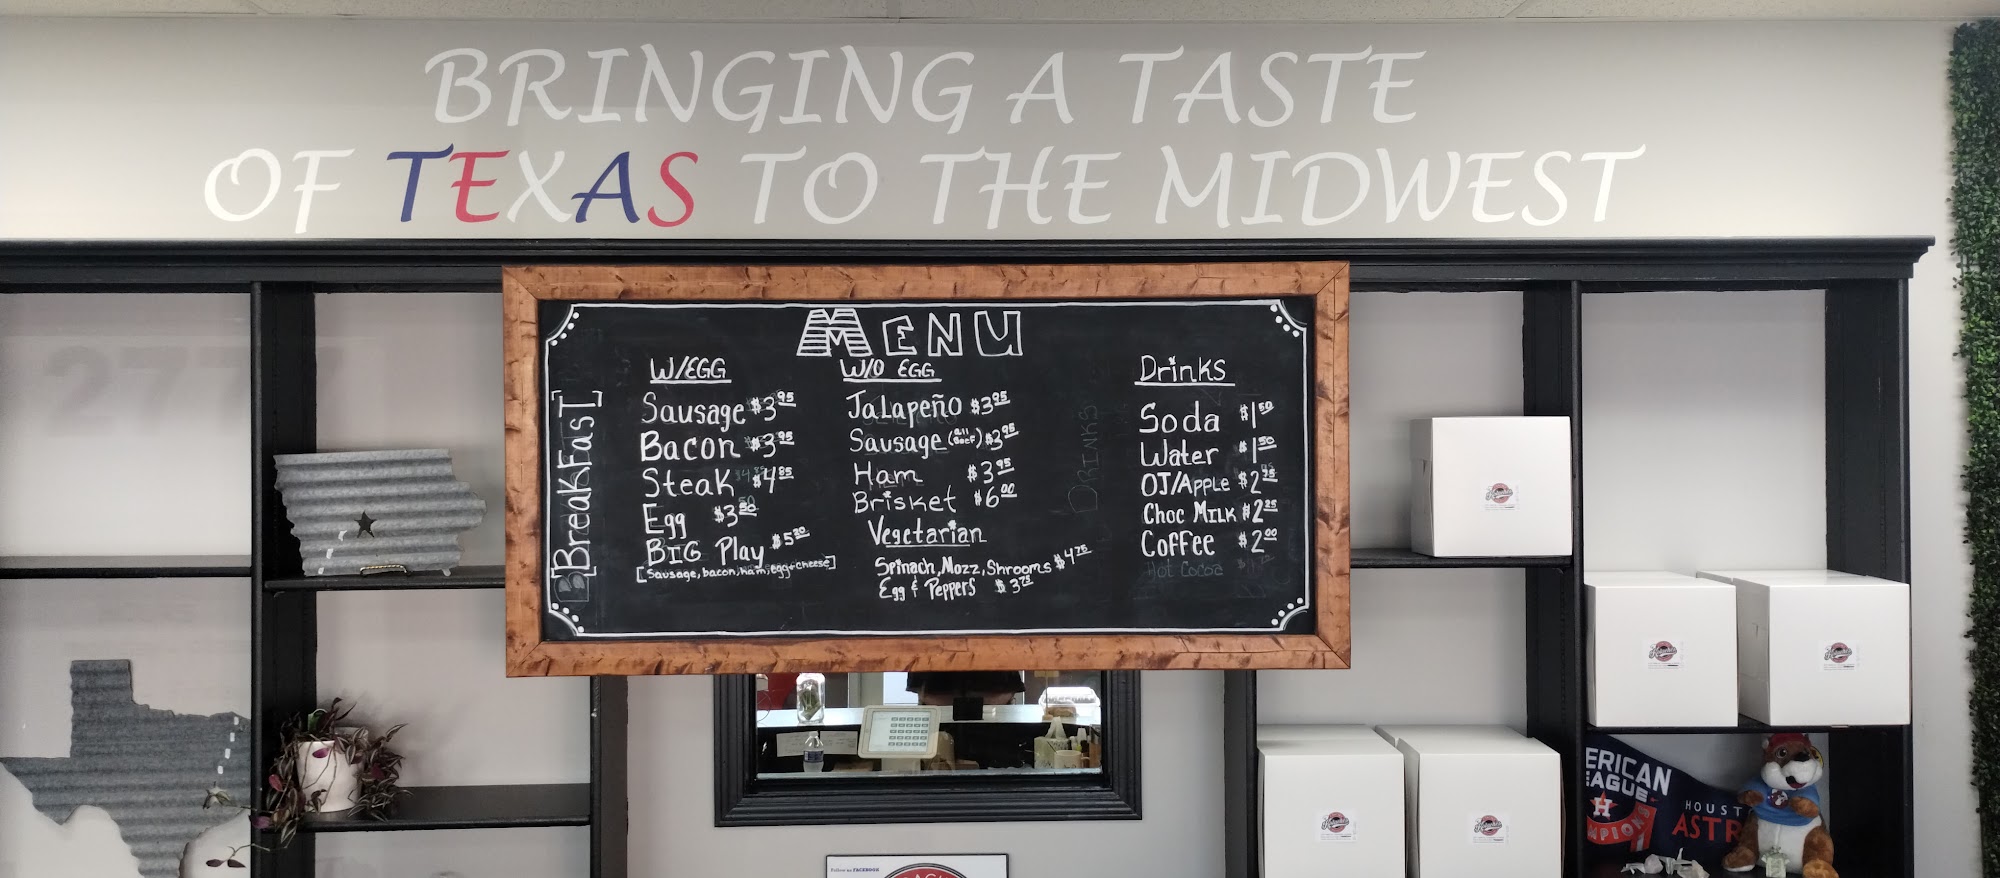 BRINGING A TASTE
OF TEXAS TO THE MIDWEST
MENU
[BreakFasT]
W/EGG
Sausage $3.95
Bacon $3.95
Steak $4.85
Egg $3.50
BIG Play $5.20
[Sausage, bacon, ham, egg + cheese]
W/O EGG
Jalapeño $3.95
Sausage (all Beef) $3.95
Ham $3.95
Brisket $6.00
Vegetarian
Spinach, Mozz, Shrooms $4.75
Egg & Peppers $3.75
DRINKS
Drinks
Soda $1.50
Water $1.50
OJ/Apple $2.25
Choc Milk $2.25
Coffee $2.00
Hot Cocoa
Follow us FACEBOOK
ERICAN
EAGUE
H
MPIONS
HOUST
ASTR